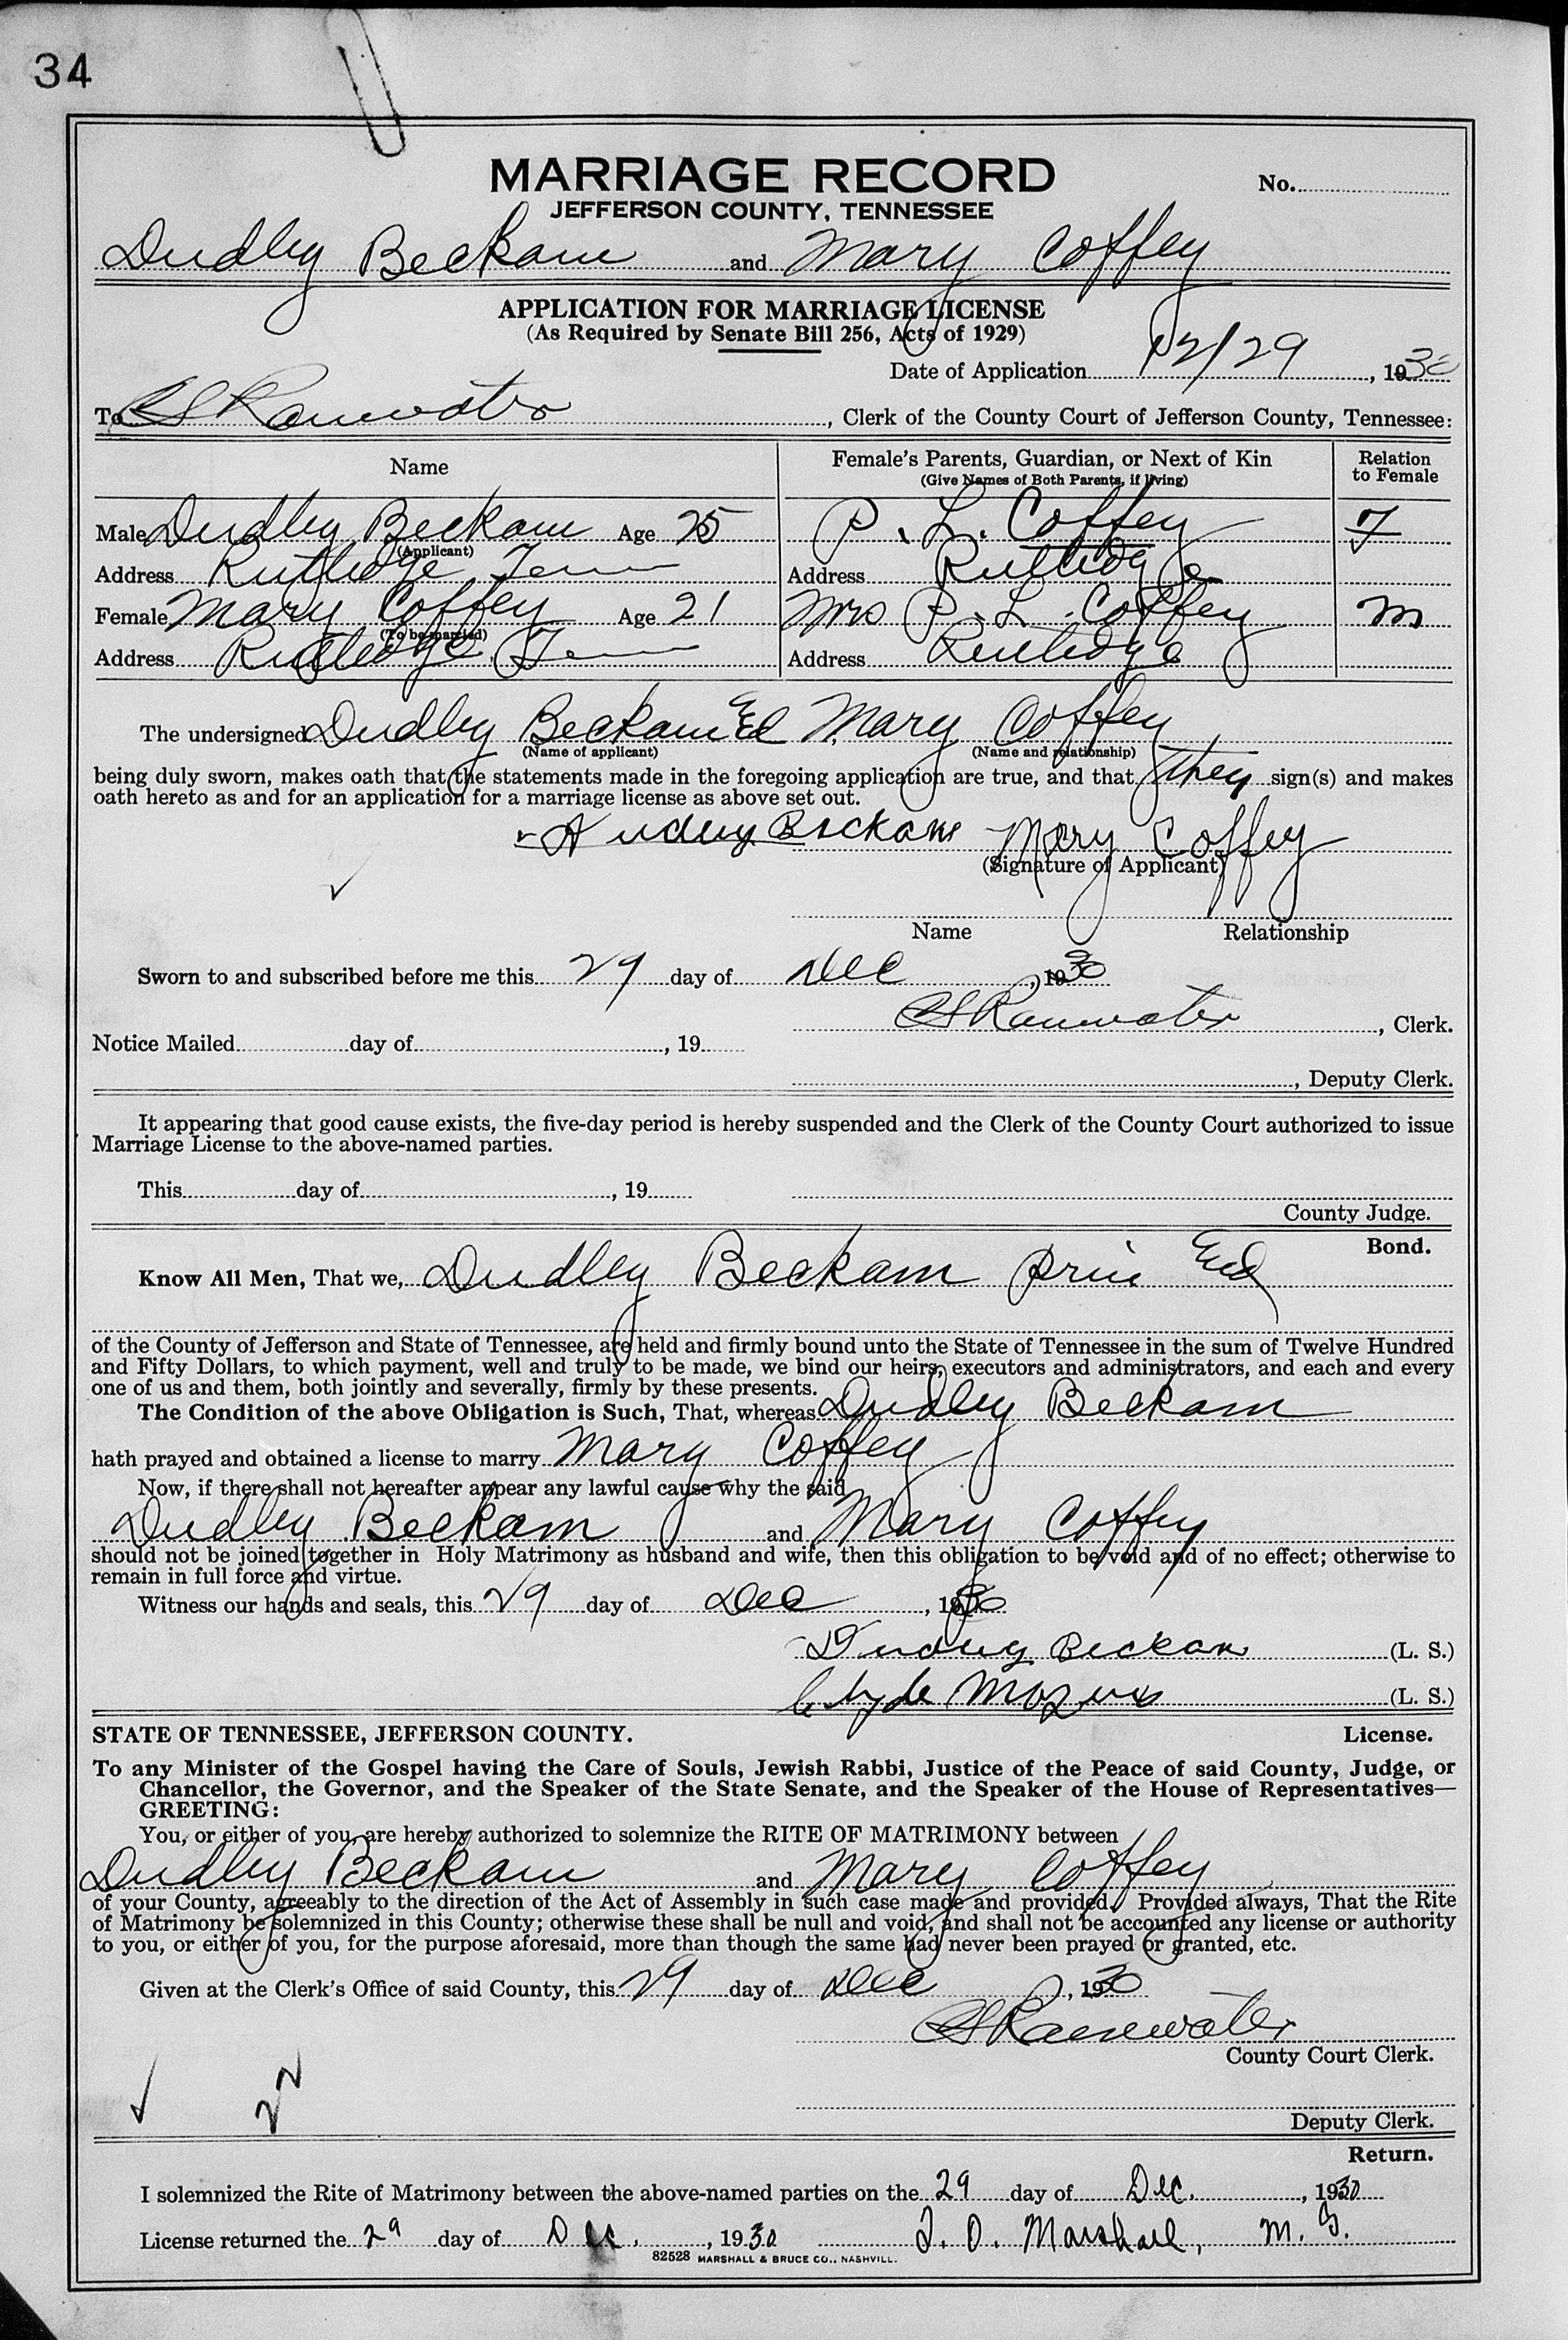 34
MARRIAGE RECORD
No.
JEFFERSON COUNTY, TENNESSEE
Dudley Beckam and Mary Coffey
APPLICATION FOR MARRIAGE LICENSE
(As Required by Senate Bill 256, Acts of 1929)
Date of Application 12/29, 1930
To Rainwater, Clerk of the County Court of Jefferson County, Tennessee:
Name Female's Parents, Guardian, or Next of Kin Relation
(Give Names of Both Parents, if living) to Female
Male Dudley Beckam Age 25 P. L. Coffey F
(Applicant)
Address Rutledge Tenn Address Rutledge
Female Mary Coffey Age 21 Mrs P. L. Coffey M
(To be married)
Address Rutledge, Tenn Address Rutledge
The undersigned Dudley Beckam Mary Coffey
(Name of applicant) (Name and relationship)
being duly sworn, makes oath that the statements made in the foregoing application are true, and that they sign(s) and makes
oath hereto as and for an application for a marriage license as above set out.
Dudley Beckam Mary Coffey
(Signature of Applicant)
Name Relationship
Sworn to and subscribed before me this 29 day of Dec, 1930
Rainwater, Clerk.
Notice Mailed day of , 19
, Deputy Clerk.
It appearing that good cause exists, the five-day period is hereby suspended and the Clerk of the County Court authorized to issue
Marriage License to the above-named parties.
This day of , 19
County Judge.
Bond.
Know All Men, That we, Dudley Beckam prin
of the County of Jefferson and State of Tennessee, are held and firmly bound unto the State of Tennessee in the sum of Twelve Hundred
and Fifty Dollars, to which payment, well and truly to be made, we bind our heirs, executors and administrators, and each and every
one of us and them, both jointly and severally, firmly by these presents.
The Condition of the above Obligation is Such, That, whereas Dudley Beckam
hath prayed and obtained a license to marry Mary Coffey
Now, if there shall not hereafter appear any lawful cause why the said
Dudley Beckam and Mary Coffey
should not be joined together in Holy Matrimony as husband and wife, then this obligation to be void and of no effect; otherwise to
remain in full force and virtue.
Witness our hands and seals, this 29 day of Dec, 1930
Dudley Beckam (L. S.)
Clyde (L. S.)
STATE OF TENNESSEE, JEFFERSON COUNTY. License.
To any Minister of the Gospel having the Care of Souls, Jewish Rabbi, Justice of the Peace of said County, Judge, or
Chancellor, the Governor, and the Speaker of the State Senate, and the Speaker of the House of Representatives—
GREETING:
You, or either of you, are hereby authorized to solemnize the RITE OF MATRIMONY between
Dudley Beckam and Mary Coffey
of your County, agreeably to the direction of the Act of Assembly in such case made and provided. Provided always, That the Rite
of Matrimony be solemnized in this County; otherwise these shall be null and void, and shall not be accounted any license or authority
to you, or either of you, for the purpose aforesaid, more than though the same had never been prayed or granted, etc.
Given at the Clerk's Office of said County, this 29 day of Dec, 1930
Rainwater
County Court Clerk.
Deputy Clerk.
Return.
I solemnized the Rite of Matrimony between the above-named parties on the 29 day of Dec., 1930
License returned the 29 day of Dec., 1930 Marshall, M. G.
82528 MARSHALL & BRUCE CO., NASHVILL.